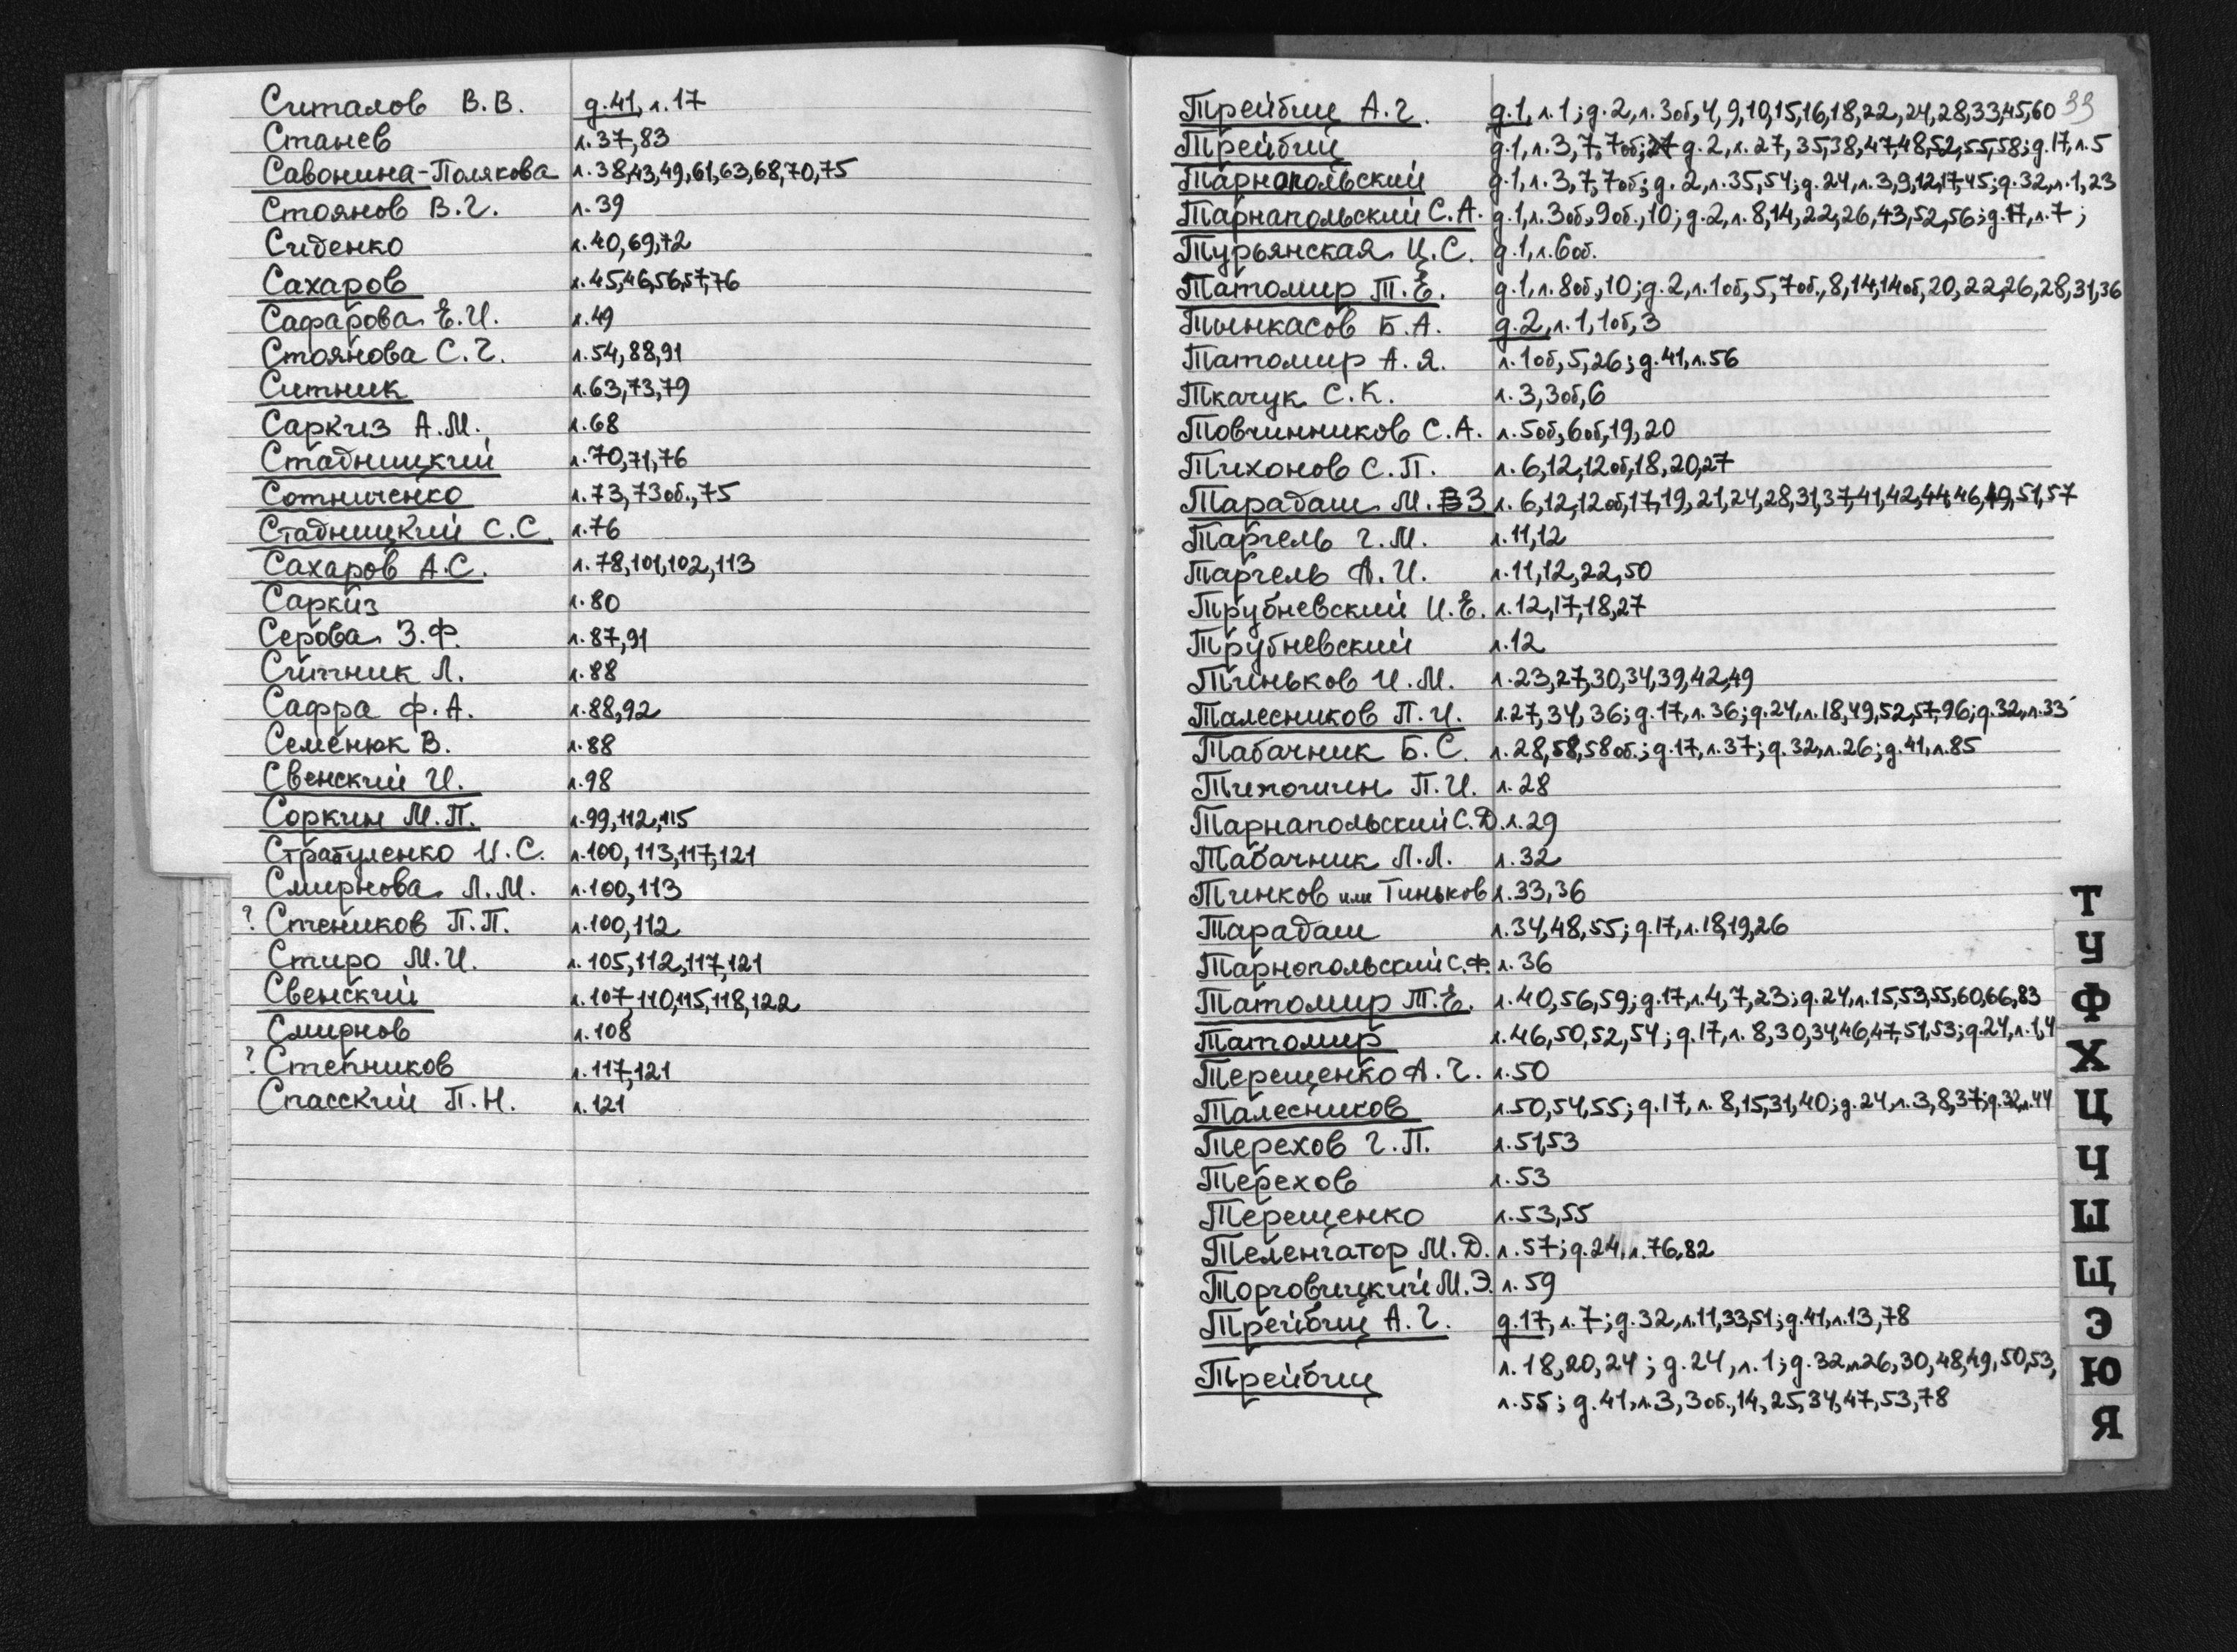 Ситалов В.В. д.41, л.17
Станев л.37,83
Савонина-Полякова л.38,43,49,61,63,68,70,75
Стоянов В.Г. л.39
Сиденко л.40,69,72
Сахаров л.45,46,56,57,76
Сафарова Е.И. л.49
Стоянова С.Г. л.54,88,91
Ситник л.63,73,79
Саркиз А.М. л.68
Стадницкий л.70,71,76
Сотниченко л.73,73об.,75
Стадницкий С.С. л.76
Сахаров А.С. л.78,101,102,113
Саркиз л.80
Серова З.Ф. л.87,91
Ситник Л. л.88
Сафра Ф.А. л.88,92
Семенюк В. л.88
Свенский И. л.98
Соркин М.П. л.99,112,115
Страбуленко И.С. л.100,113,117,121
Смирнова Л.М. л.100,113
? Стеников П.П. л.100,112
Стиро М.И. л.105,112,117,121
Свенский л.107,110,115,118,122
Смирнов л.108
? Степников л.117,121
Спасский П.Н. л.121
Трейбиц А.Г. д.1, л.1; д.2, л.3об,4,9,10,15,16,18,22,24,28,33,45,60 39
Трейбиц д.1, л.3,7,7об; д.2, л.27,35,38,47,48,52,55,58; д.17, л.5
Тарнопольский д.1, л.3,7,7об; д.2, л.35,54; д.24, л.3,9,12,17,45; д.32, л.1,23
Тарнапольский С.А. д.1, л.3об,9об.,10; д.2, л.8,14,22,26,43,52,56; д.17, л.7;
Турьянская Ц.С. д.1, л.6об.
Татомир Т.Е. д.1, л.8об,10; д.2, л.1об,5,7об.,8,14,14об,20,22,26,28,31,36
Тынкасов Б.А. д.2, л.1,1об,3
Татомир А.Я. л.1об,5,26; д.41, л.56
Ткачук С.К. л.3,3об,6
Товчинников С.А. л.5об,6об,19,20
Тихонов С.П. л.6,12,12об,18,20,27
Тарадаш М.З л.6,12,12об,17,19,21,24,28,31,37,41,42,44,46,49,51,57
Таргель Г.М. л.11,12
Таргель А.И. л.11,12,22,50
Трубневский И.Е. л.12,17,18,27
Трубневский л.12
Тиньков И.М. л.23,27,30,34,39,42,49
Талесников П.И. л.27,34,36; д.17, л.36; д.24, л.18,49,52,57,96; д.32, л.33
Табачник Б.С. л.28,58,58об.; д.17, л.37; д.32, л.26; д.41, л.85
Тимошин П.И. л.28
Тарнапольский С.Д. л.29
Табачник Л.Л. л.32
Тинков или Тиньков л.33,36
Тарадаш л.34,48,55; д.17, л.18,19,26
Тарнопольский С.Ф. л.36
Татомир Т.Е. л.40,56,59; д.17, л.4,7,23; д.24, л.15,53,55,60,66,83
Татомир л.46,50,52,54; д.17, л.8,30,34,46,47,51,53; д.24, л.1,4
Терещенко А.Г. л.50
Талесников л.50,54,55; д.17, л.8,15,31,40; д.24, л.3,8,37; д.32, л.44
Терехов Г.П. л.51,53
Терехов л.53
Терещенко л.53,55
Теленгатор М.Д. л.57; д.24, л.76,82
Торговицкий М.Э. л.59
Трейбиц А.Г. д.17, л.7; д.32, л.11,33,51; д.41, л.13,78
Трейбиц л.18,20,24; д.24, л.1; д.32, л.26,30,48,49,50,53,
л.55; д.41, л.3,3об.,14,25,34,47,53,78
Т
У
Ф
Х
Ц
Ч
Ш
Щ
Э
Ю
Я